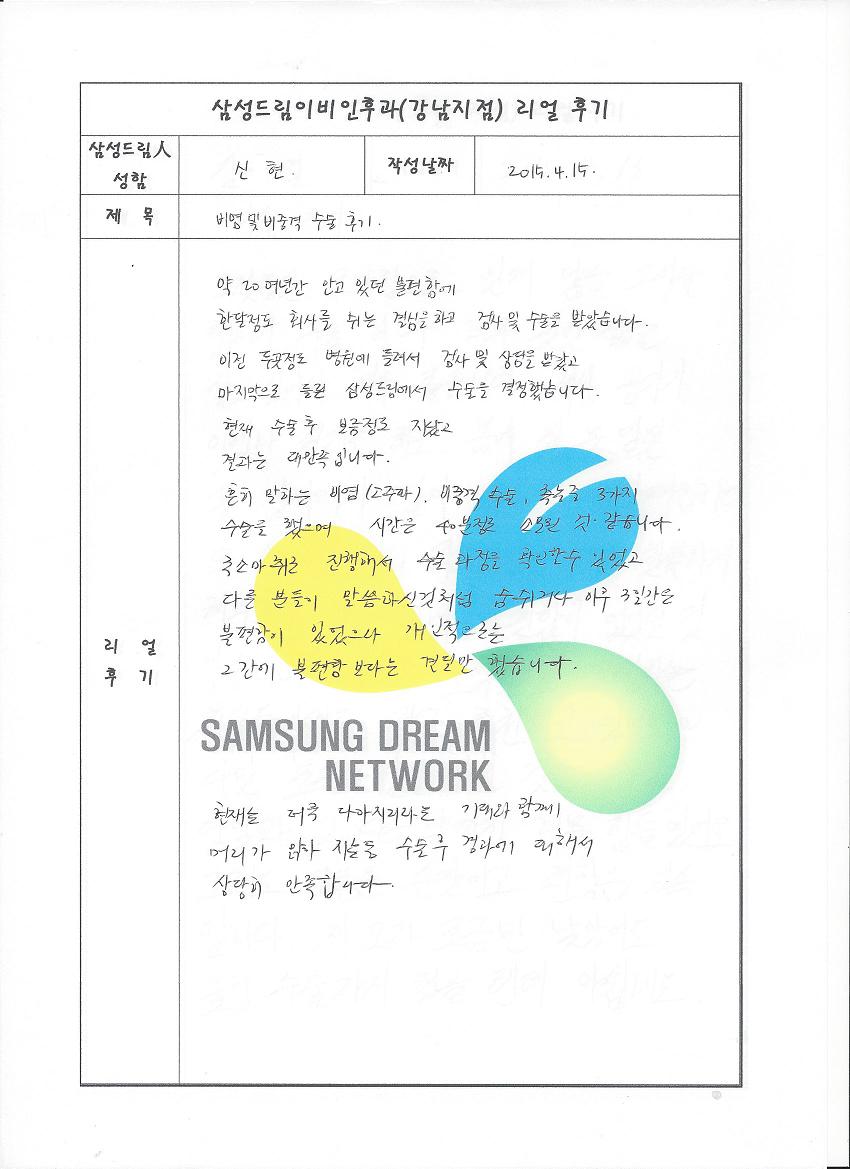 삼성드림이비인후과(강남지점) 리얼 후기
삼성드림人
성함
신 현.
작성날짜
2015.4.15.
제 목
비염 및 비중격 수술 후기.
리 얼
후 기
약 20여년간 안고 있던 불편함에
한달정도 회사를 쉬는 결심을하고 검사 및 수술을 받았습니다.
이전 두곳정도 병원에 들려서 검사 및 상담을 받았고
마지막으로 들린 삼성드림에서 수술을 결정했습니다.
현재 수술 후 보름정도 지났고
결과는 대만족입니다.
흔히 말하는 비염(고주파), 비중격 수술, 축농증 3가지
수술을 했으며 시간은 40분정도 소요된 것 같습니다.
국소마취로 진행해서 수술 과정을 확인할수 있었고
다른 분들이 말씀하신것처럼 숨쉬거나 하루 3일간은
불편함이 있었으나 개인적으로는
그간에 불편함 보다는 견딜만 했습니다.
SAMSUNG DREAM
NETWORK
현재는 더욱 나아지리라는 기대와 함께
머리가 지늘든 수술 후 결과에 대해서
상당히 만족합니다.